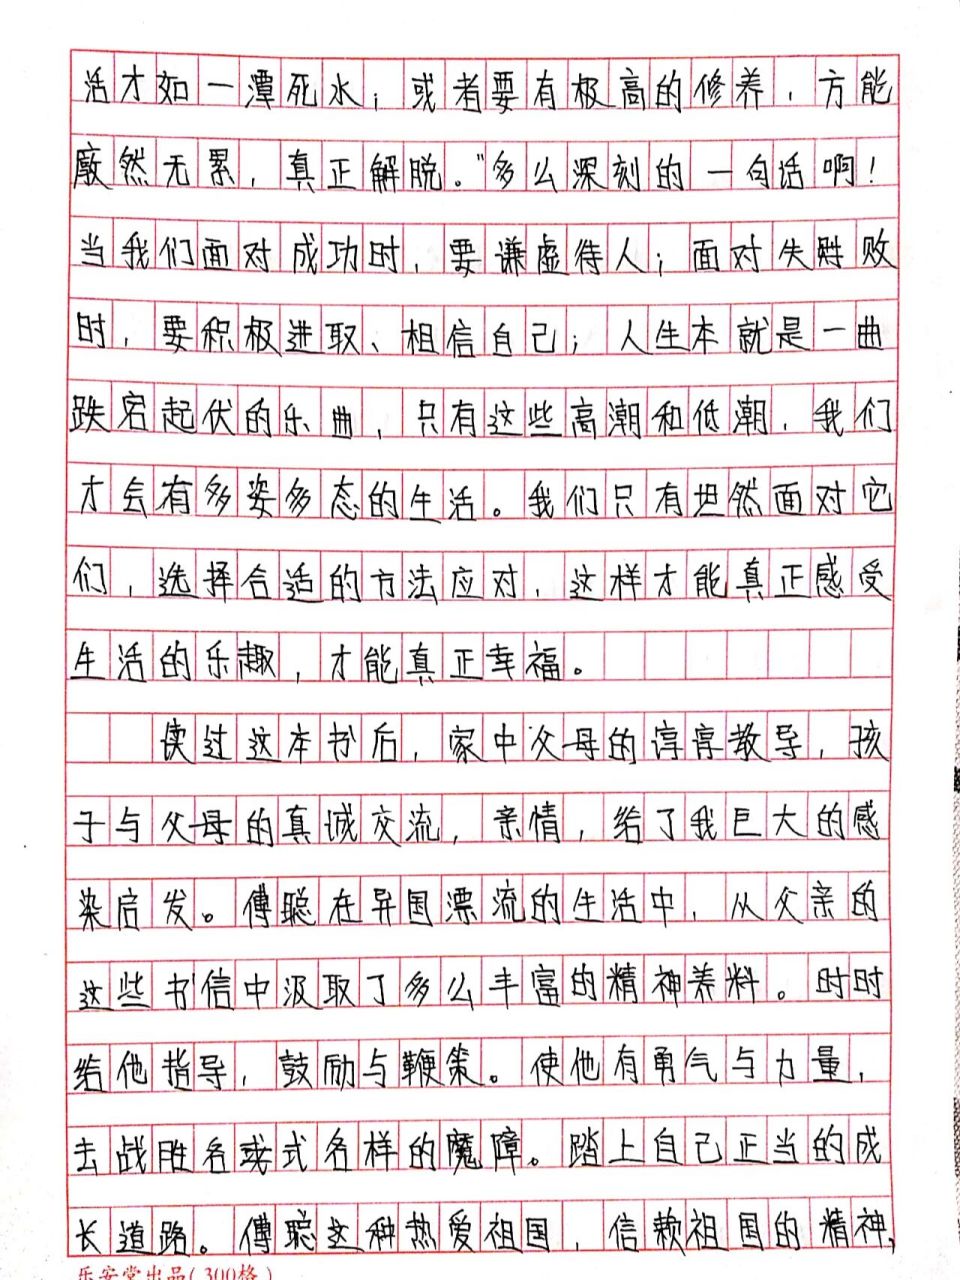 活才如一潭死水；或者要有极高的修养，方能
廓然无累，真正解脱。"多么深刻的一句话啊！
当我们面对成功时，要谦虚待人；面对失败
时，要积极进取、相信自己；人生本就是一曲
跌宕起伏的乐曲，只有这些高潮和低潮，我们
才会有多姿多态的生活。我们只有坦然面对它
们，选择合适的方法应对，这样才能真正感受
生活的乐趣，才能真正幸福。
读过这本书后，家中父母的谆谆教导，孩
子与父母的真诚交流，亲情，给了我巨大的感
染启发。傅聪在异国漂流的生活中，从父亲的
这些书信中汲取了多么丰富的精神养料。时时
给他指导，鼓励与鞭策。使他有勇气与力量，
去战胜各式各样的魔障。踏上自己正当的成
长道路。傅聪这种热爱祖国，信赖祖国的精神，
乐安堂出品(300格)